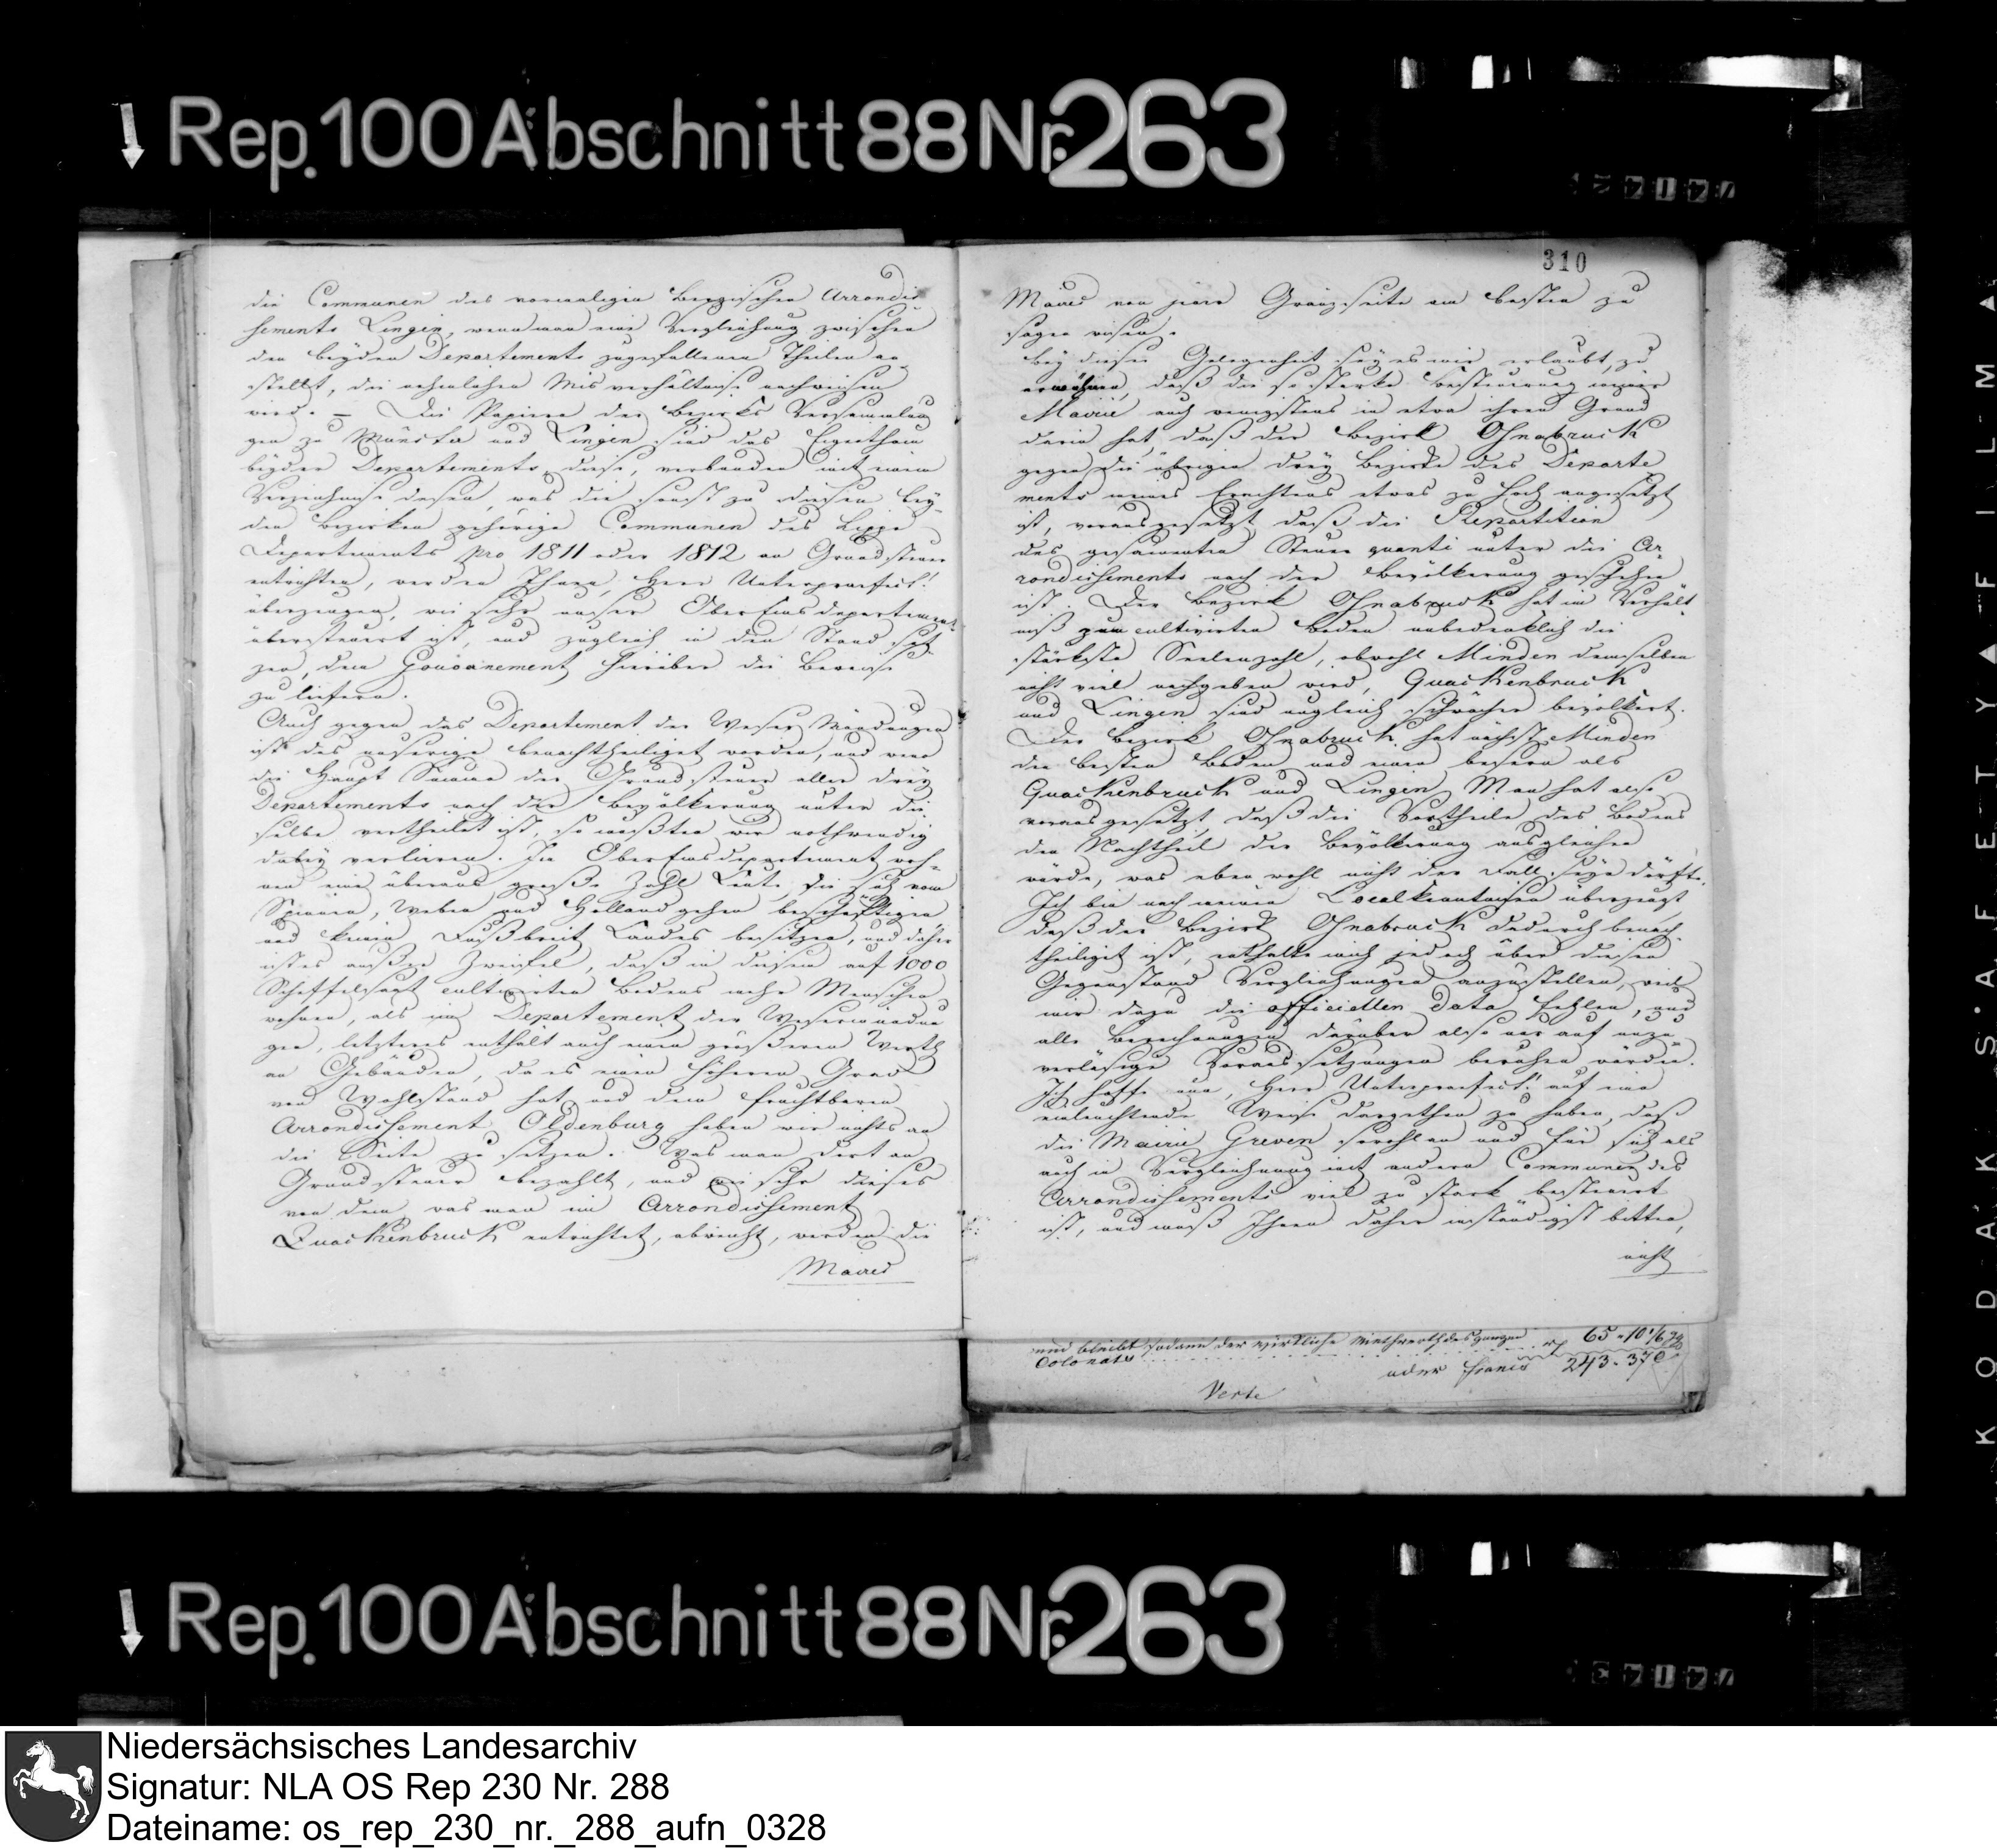 Rep. 100 Abschnitt 88 Nr. 263
die Communen des vormaligen Bergischen Arrondis
sements Lingen, wenn man eine Vergleichung zwischen
den beyden Departements zugefallenen Theilen an-
stellt, die nehmlichen Misverhältnisse nachweisen
wird. – Die Papiere der Bezirks Versammlun
gen zu Münster und Lingen sind das Eigenthum
beyder Departements, diese, verbunden mit einem
Verzeichnisse dessen, was die sonst zu diesen bey-
den Bezirken gehörige Communen des Lippe
Departements pro 1811 oder 1812 an Grundsteuer
entrichten, werden Ihnen, Herr Unterpraefect!
überzeugen, wie sehr unser OberEmsdepartement
übersteuert ist, und zugleich in den Stand set-
zen, dem Gouvernement hierüber die Beweise
zu liefern.
Auch gegen das Departement der Weser Mündungen
ist das unserige benachtheiliget worden, und wenn
die Haupt Summe der Grundsteuer aller drey
Departements nach der Bevölkerung unter die-
selbe vertheilet ist, so mußten wir nothwendig
dabey verlieren. Im OberEmsdepartement woh-
nen eine überaus große Zahl Leute, die sich vom
Spinnen, Weben und Hollandgehen beschäftigen
und keinen Fußbreit Landes besitzen, und daher
ist es außer Zweifel, daß in diesem auf 1000
Scheffelsaat cultivirten Bodens mehr Menschen
wohnen, als im Departement der Wesermündun
gen, letzteres enthält auch einen größeren Werth
an Gebäuden, da es einen höheren Grad
von Wohlstand hat, und dem fruchtbaren
Arrondissement Oldenburg haben wir nichts an
die Seite zu setzen. Was man dort an
Grundsteuer bezahlt, und wie sehr dieses
von dem was man im Arrondissement
Quackenbruck entrichtet, abweicht, werden die
Maires
310
Maires von jener Gränzseite am besten zu
sagen wissen.
Bey dieser Gelegenheit sey es mir erlaubt, zu
erwähnen, daß die so starke Besteuerung meiner
Mairie auch wenigstens in etwa ihren Grund
darin hat, daß der Bezirk Osnabruck
gegen die übrigen drey Bezirke des Departe
ments meines Erachtens etwas zu hoch angesetzt
ist, vorausgesetzt daß die Repartition
des gesammten Steuer quanti unter die Ar-
rondissements nach der Bevölkerung geschehen
ist. Der Bezirk Osnabruck hat im Verhält-
niß zum cultivirten Boden unbedenklich die
stärkste Seelenzahl, obwohl Minden demselben
nicht viel nachgeben wird, Quackenbruck
und Lingen sind ungleich schwächer bevölkert.
Der Bezirk Osnabruck hat nächst Minden
den besten Boden und einen bessern als
Quackenbruck und Lingen. Man hat also
vorausgesetzt, daß die Vortheile des Bodens
den Nachtheil der Bevölkerung ausgleichen
würde, was eben wohl nicht der Fall seyn dürfte.
Ich bin nach meinen Localkenntnissen überzeugt
daß der Bezirk Osnabruck dadurch benach-
theiliget ist, enthalte mich jedoch über diesen
Gegenstand Vergleichungen anzustellen, weil
mir dazu die officiellen Data fehlen, und
alle Berechnungen darüber also nur auf unzu-
verlässige Voraussetzungen beruhen würden.
Ich hoffe nun, Herr Unterpraefect! auf eine
einleuchtende Weise dargethan zu haben, daß
die Mairie Greven sowohl an und für sich als
auch in Vergleichung mit andern Communen des
Arrondissements viel zu stark besteuert
ist, und muß Ihnen daher inständigst bitten,
nicht
und bleibt sodann der wirkliche Miethwerth des ganzen
Colonats . . . . . . rh 65 - 10 1/6
oder francs 243 - 37 c
Verte
Rep. 100 Abschnitt 88 Nr. 263
KODAK · SAFETY FILM
Niedersächsisches Landesarchiv
Signatur: NLA OS Rep 230 Nr. 288
Dateiname: os_rep_230_nr._288_aufn_0328